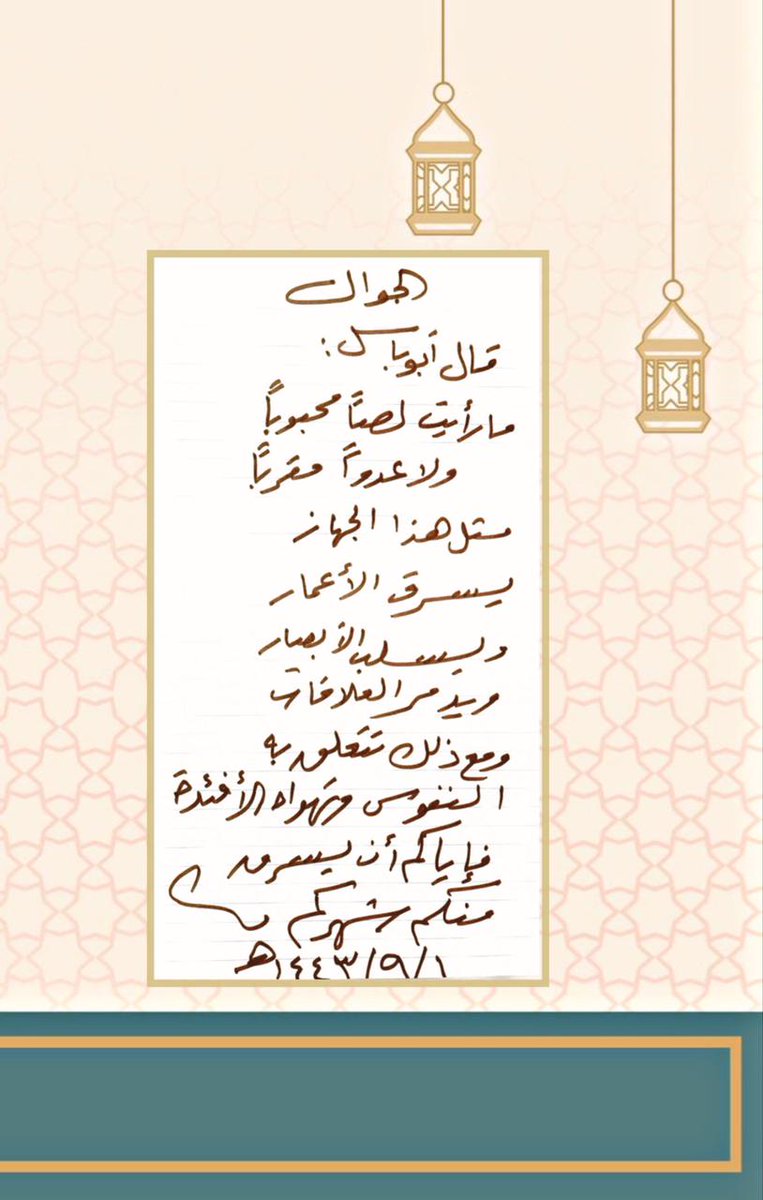 الجوال
قال أبو باسل:
ما رأيت لصاً محبوباً
ولا عدواً مقرباً
مثل هذا الجهاز
يسرق الأعمار
ويسلب الأبصار
ويدمر العلاقات
ومع ذلك تتعلق به
النفوس وتهواه الأفئدة
فإياكم أن يسرق
منكم شهركم
١٤٤٣/٩/١هـ